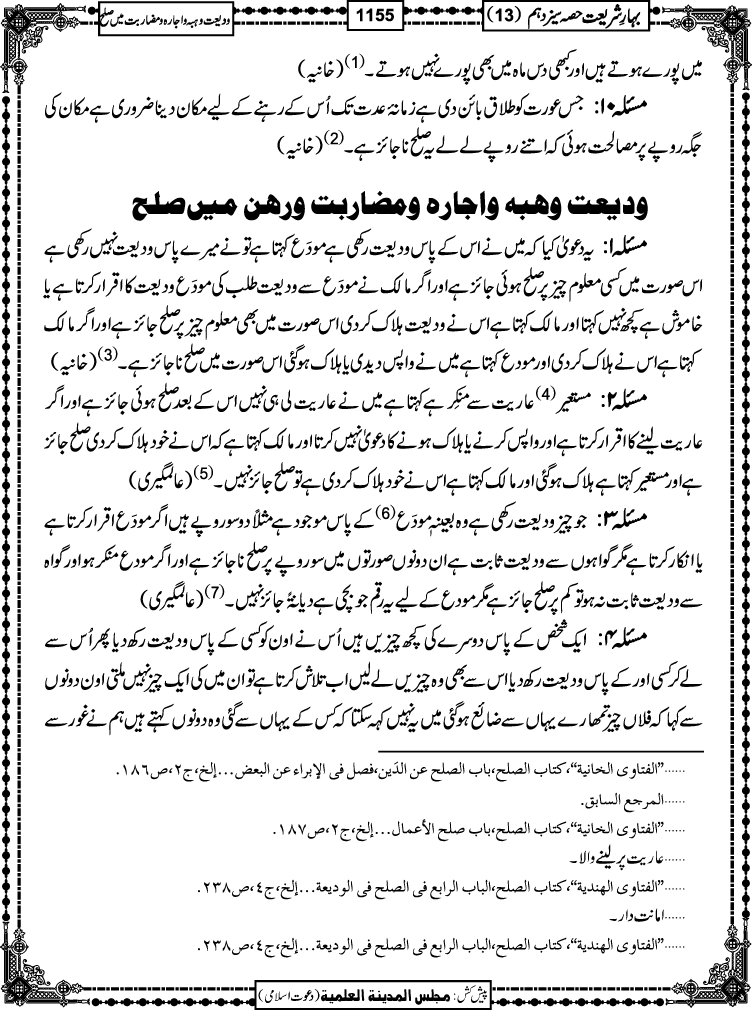 بہارِ شریعت حصہ سیز دہم (13)
1155
ودیعت وہبہ واجارہ ومضاربت میں صلح
میں پورے ہوتے ہیں اور کبھی دس ماہ میں بھی پورے نہیں ہوتے۔(1)(خانیہ)
مسئلہ ۱۰: جس عورت کو طلاق بائن دی ہے زمانۂ عدت تک اُس کے رہنے کے لیے مکان دینا ضروری ہے مکان کی
جگہ روپے پر مصالحت ہوئی کہ اتنے روپے لے لے یہ صلح ناجائز ہے۔(2)(خانیہ)
ودیعت وھبہ واجارہ ومضاربت ورھن میں صلح
مسئلہ ۱: یہ دعویٰ کیا کہ میں نے اس کے پاس ودیعت رکھی ہے مودَع کہتا ہے تو نے میرے پاس ودیعت نہیں رکھی ہے
اس صورت میں کسی معلوم چیز پر صلح ہوئی جائز ہے اور اگر مالک نے مودَع سے ودیعت طلب کی مودَع ودیعت کا اقرار کرتا ہے یا
خاموش ہے کچھ نہیں کہتا اور مالک کہتا ہے اس نے ودیعت ہلاک کردی اس صورت میں بھی معلوم چیز پر صلح جائز ہے اور اگر مالک
کہتا ہے اس نے ہلاک کردی اور مودع کہتا ہے میں نے واپس دیدی یا ہلاک ہوگئی اس صورت میں صلح ناجائز ہے۔(3)(خانیہ)
مسئلہ ۲: مستعیر(4)عاریت سے منکِر ہے کہتا ہے میں نے عاریت لی ہی نہیں اس کے بعد صلح ہوئی جائز ہے اور اگر
عاریت لینے کا اقرار کرتا ہے اور واپس کرنے یا ہلاک ہونے کا دعویٰ نہیں کرتا اور مالک کہتا ہے کہ اس نے خود ہلاک کردی صلح جائز
ہے اور مستعیر کہتا ہے ہلاک ہوگئی اور مالک کہتا ہے اس نے خود ہلاک کردی ہے تو صلح جائز نہیں۔(5)(عالمگیری)
مسئلہ ۳: جو چیز ودیعت رکھی ہے وہ بعینہٖ مودَع(6)کے پاس موجود ہے مثلاً دوسو روپے ہیں اگر مودَع اقرار کرتا ہے
یا انکار کرتا ہے مگر گواہوں سے ودیعت ثابت ہے ان دونوں صورتوں میں سو روپے پر صلح ناجائز ہے اور اگر مودع منکر ہو اور گواہ
سے ودیعت ثابت نہ ہو تو کم پر صلح جائز ہے مگر مودع کے لیے یہ رقم جو بچی ہے دیانۃً جائز نہیں۔(7)(عالمگیری)
مسئلہ ۴: ایک شخص کے پاس دوسرے کی کچھ چیزیں ہیں اُس نے اون کو کسی کے پاس ودیعت رکھ دیا پھر اُس سے
لے کر کسی اور کے پاس ودیعت رکھ دیا اس سے بھی وہ چیزیں لے لیں اب تلاش کرتا ہے تو ان میں کی ایک چیز نہیں ملتی اون دونوں
سے کہا کہ فلاں چیز تمھارے یہاں سے ضائع ہوگئی میں یہ نہیں کہہ سکتا کہ کس کے یہاں سے گئی وہ دونوں کہتے ہیں ہم نے غور سے
......"الفتاوى الخانية"،كتاب الصلح،باب الصلح عن الدَين،فصل في الإبراء عن البعض...إلخ،ج٢،ص١٨٦.
......المرجع السابق.
......"الفتاوى الخانية"،كتاب الصلح،باب صلح الأعمال...إلخ،ج٢،ص١٨٧.
......عاریت پر لینے والا۔
......"الفتاوى الهندية"،كتاب الصلح،الباب الرابع في الصلح في الوديعة...إلخ،ج٤،ص٢٣٨.
......امانت دار۔
......"الفتاوى الهندية"،كتاب الصلح،الباب الرابع في الصلح في الوديعة...إلخ،ج٤،ص٢٣٨.
پیش کش: مجلس المدینة العلمیة (دعوت اسلامی)